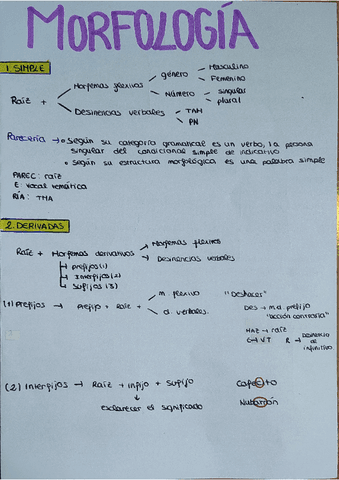 MORFOLOGÍA
1. SIMPLE
Raíz +
Morfemas flexivos
género
Masculino
Femenino
Número
singular
plural
Desinencias verbales
TAM
PN
Parecería → o Según su categoría gramatical es un verbo, 1a persona
singular del condicional simple de indicativo
o según su estructura morfológica es una palabra simple
PAREC: raíz
E: vocal temática
RÍA: TMA
2. DERIVADAS
Raíz + Morfemas derivativos
Morfemas flexivos
Desinencias verbales
prefijos (1)
Interfijos (2)
Sufijos (3)
(1) Prefijos → Prefijo + Raíz +
m. flexivo
d. verbales.
"Deshacer"
Des → m.d. prefijo
"acción contraria"
HAZ → raíz
E → VT R → Desinencia
de
infinitivo
(2) Interfijos → Raíz + infijo + Sufijo
esclarecer el significado
CafeCito
Nubarrón